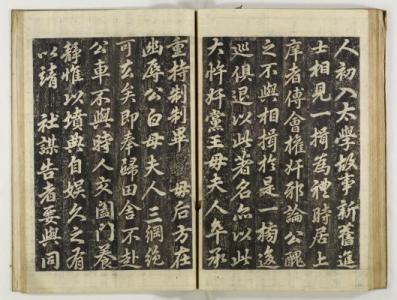 人初入太學故事新舊進
士相見一揖為禮時居上
庠者傅會權奸邪論公醜
之不與相揖於是一揖後
巡俱退以此著名亦以此
大忤奸黨王母夫人卒承
重持制制畢 母后方在
幽辱公白母夫人三綱絶
可去矣即奉歸田舍不赴
公車不與時人交闔門養
靜惟以墳典自娛久之有
以靖 社謀告者要與同